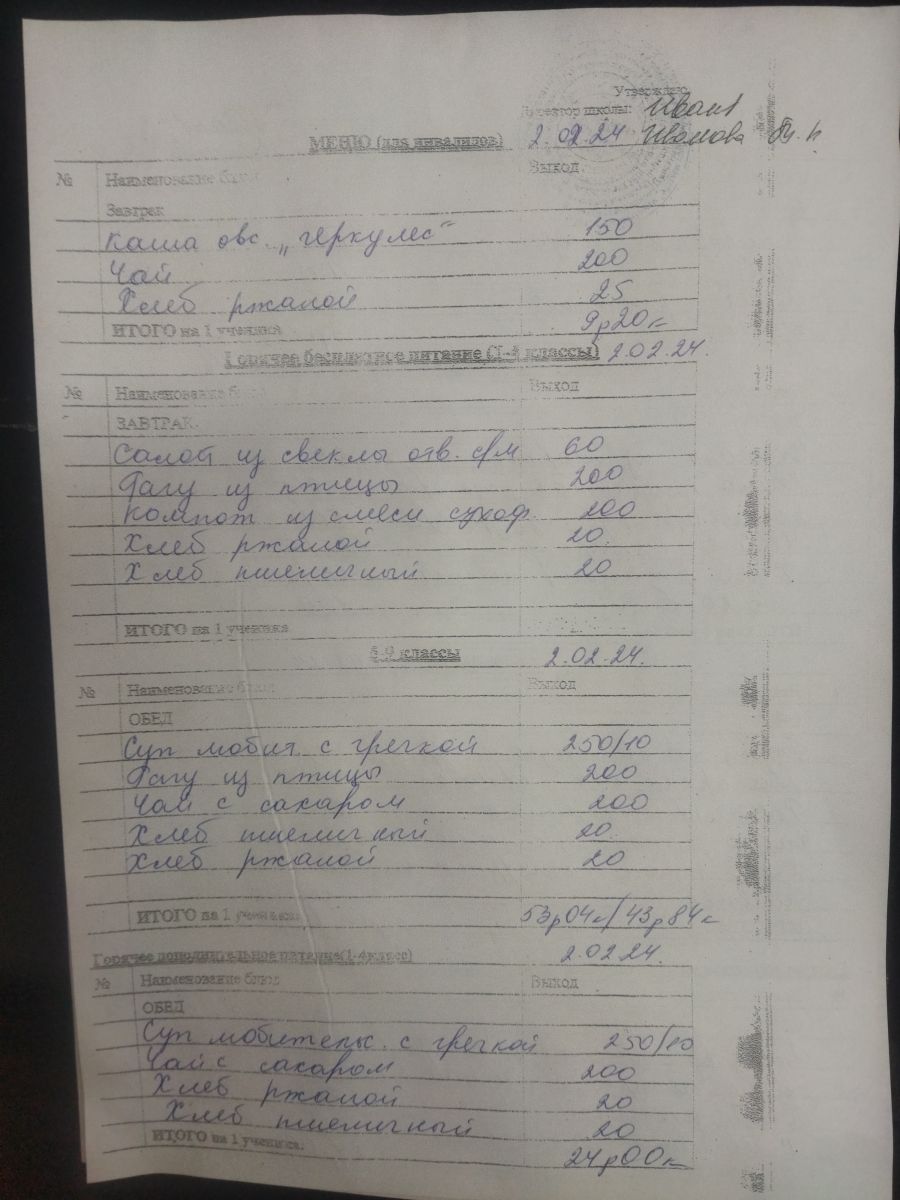 Утверждаю
Директор школы:
МЕНЮ (для инвалидов) 2.02.24 Иванова
№ Наименование блюд Выход
Завтрак
Каша овс. „Геркулес" 150
Чай 200
Хлеб ржаной 25
ИТОГО на 1 ученика 9р20к
Горячее бесплатное питание (1-4 классы) 2.02.24.
№ Наименование блюд Выход
ЗАВТРАК.
Салат из свеклы отв. с/м 60
Рагу из птицы 200
Компот из смеси сухоф. 200
Хлеб ржаной 20.
Хлеб пшеничный 20
ИТОГО на 1 ученика
5-9 классы 2.02.24.
№ Наименование блюд Выход
ОБЕД
Суп любит. с гречкой 250/10
Рагу из птицы 200
Чай с сахаром 200
Хлеб пшеничный 20.
Хлеб ржаной 20
ИТОГО на 1 ученика 53р04к/43р84к
Горячее дополнительное питание(1-4 класс) 2.02.24.
№ Наименование блюд Выход
ОБЕД
Суп любительс. с гречкой 250/10
Чай с сахаром 200
Хлеб ржаной 20
Хлеб пшеничный 20
ИТОГО на 1 ученика. 24р00к